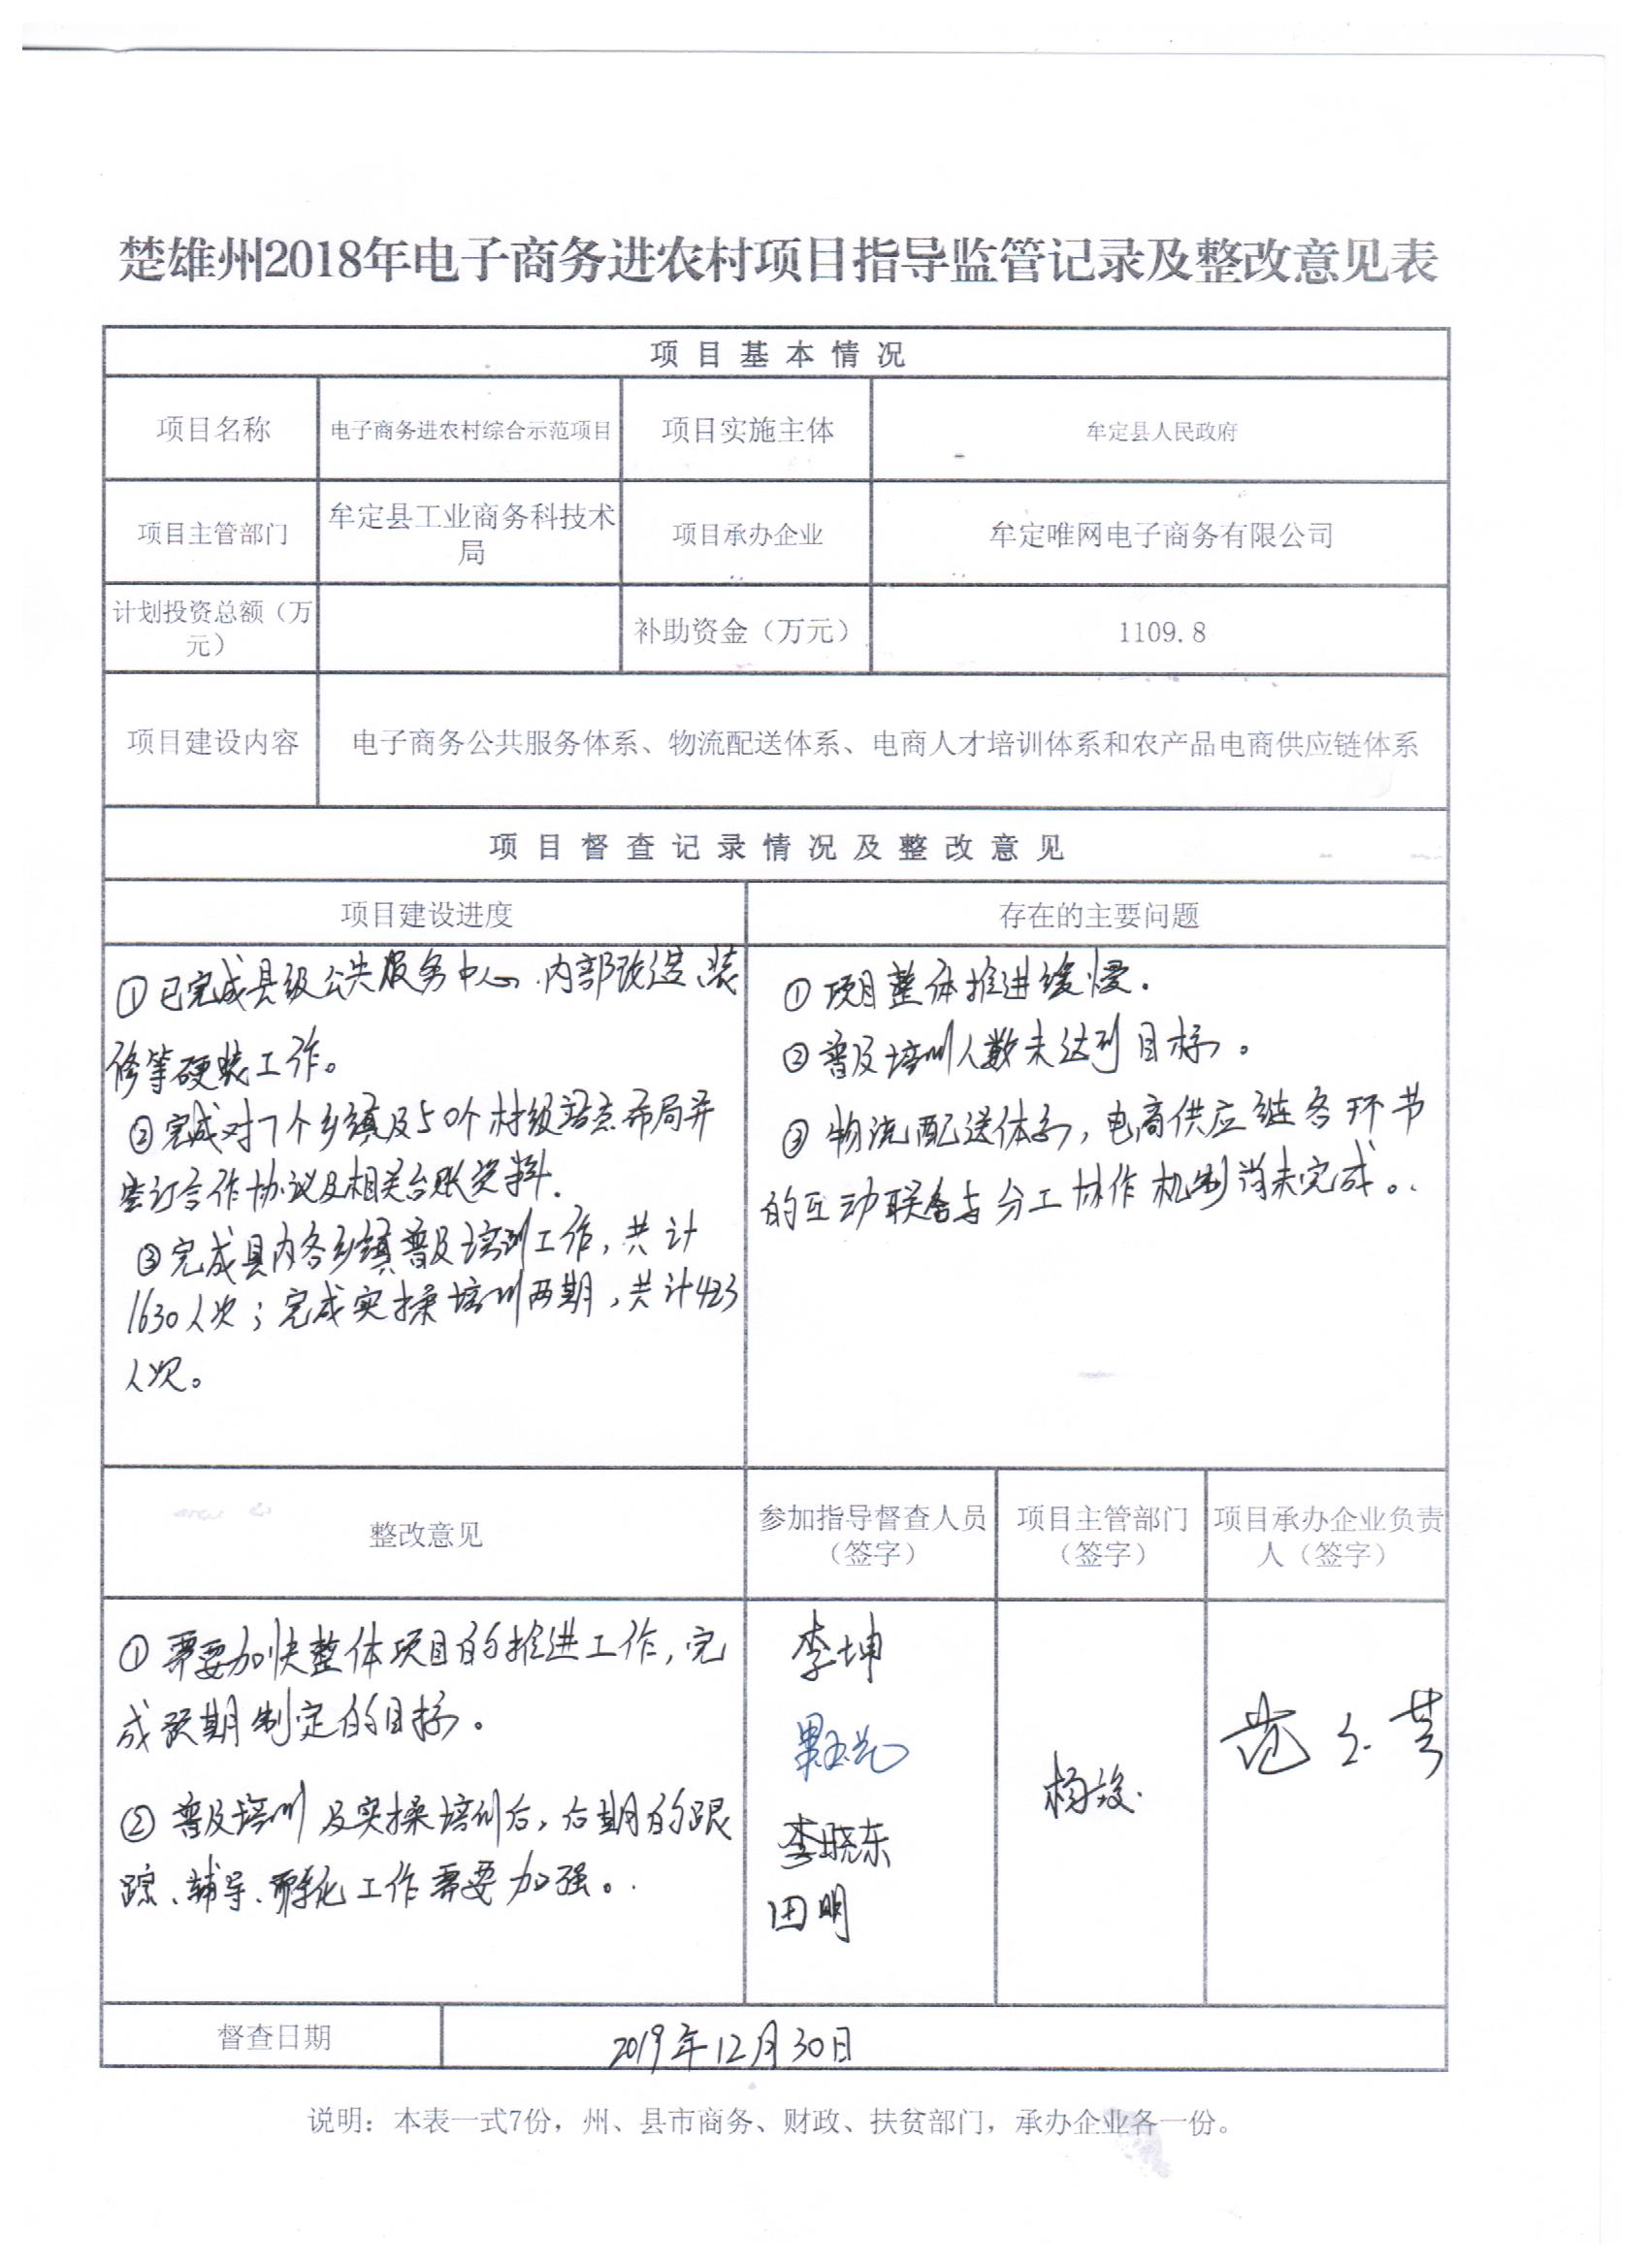 楚雄州2018年电子商务进农村项目指导监管记录及整改意见表
项目基本情况
项目名称 电子商务进农村综合示范项目 项目实施主体 牟定县人民政府
项目主管部门 牟定县工业商务科技术局 项目承办企业 牟定唯网电子商务有限公司
计划投资总额（万元） 补助资金（万元） 1109.8
项目建设内容 电子商务公共服务体系、物流配送体系、电商人才培训体系和农产品电商供应链体系
项目督查记录情况及整改意见
项目建设进度 存在的主要问题
①已完成县级公共服务中心、内部改造、装
修等硬装工作。
②完成对7个乡镇及50个村级站点布局并
签订合作协议及相关台账资料.
③完成县内各乡镇普及培训工作,共计
1630人次;完成实操培训两期,共计423
人次。
①项目整体推进缓慢.
②普及培训人数未达到目标。
③物流配送体系,电商供应链各环节
的互动联合与分工协作机制尚未完成。
整改意见 参加指导督查人员（签字） 项目主管部门（签字） 项目承办企业负责人（签字）
①需要加快整体项目的推进工作,完
成预期制定的目标。
②普及培训及实操培训后,后期的跟
踪、辅导、孵化工作需要加强。
李坤
李晓东
田明
督查日期 2019年12月30日
说明：本表一式7份，州、县市商务、财政、扶贫部门，承办企业各一份。